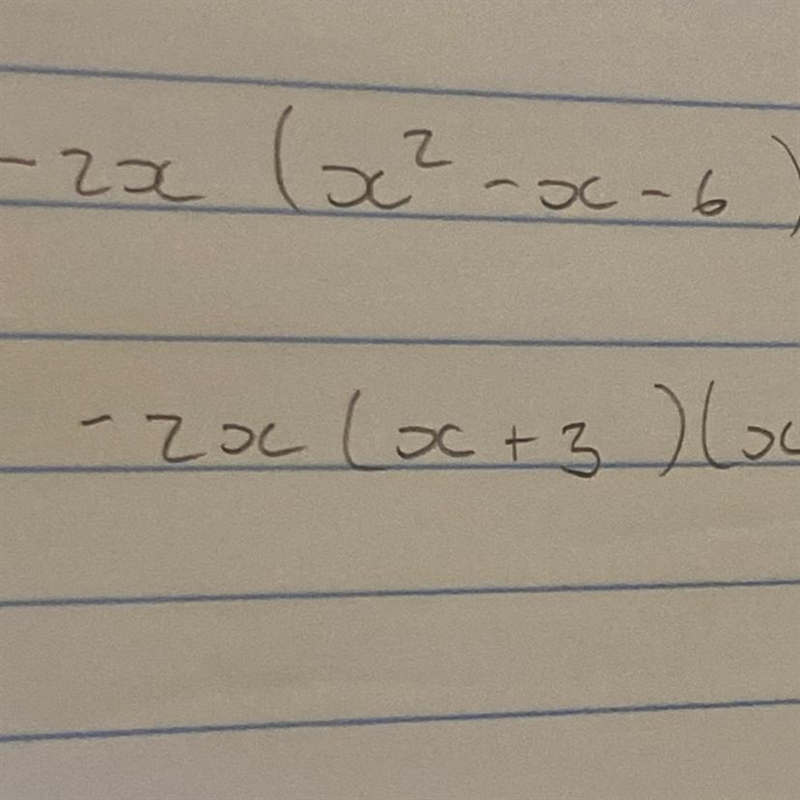 -2x (x² -x -6)
-2x (x+3)(x